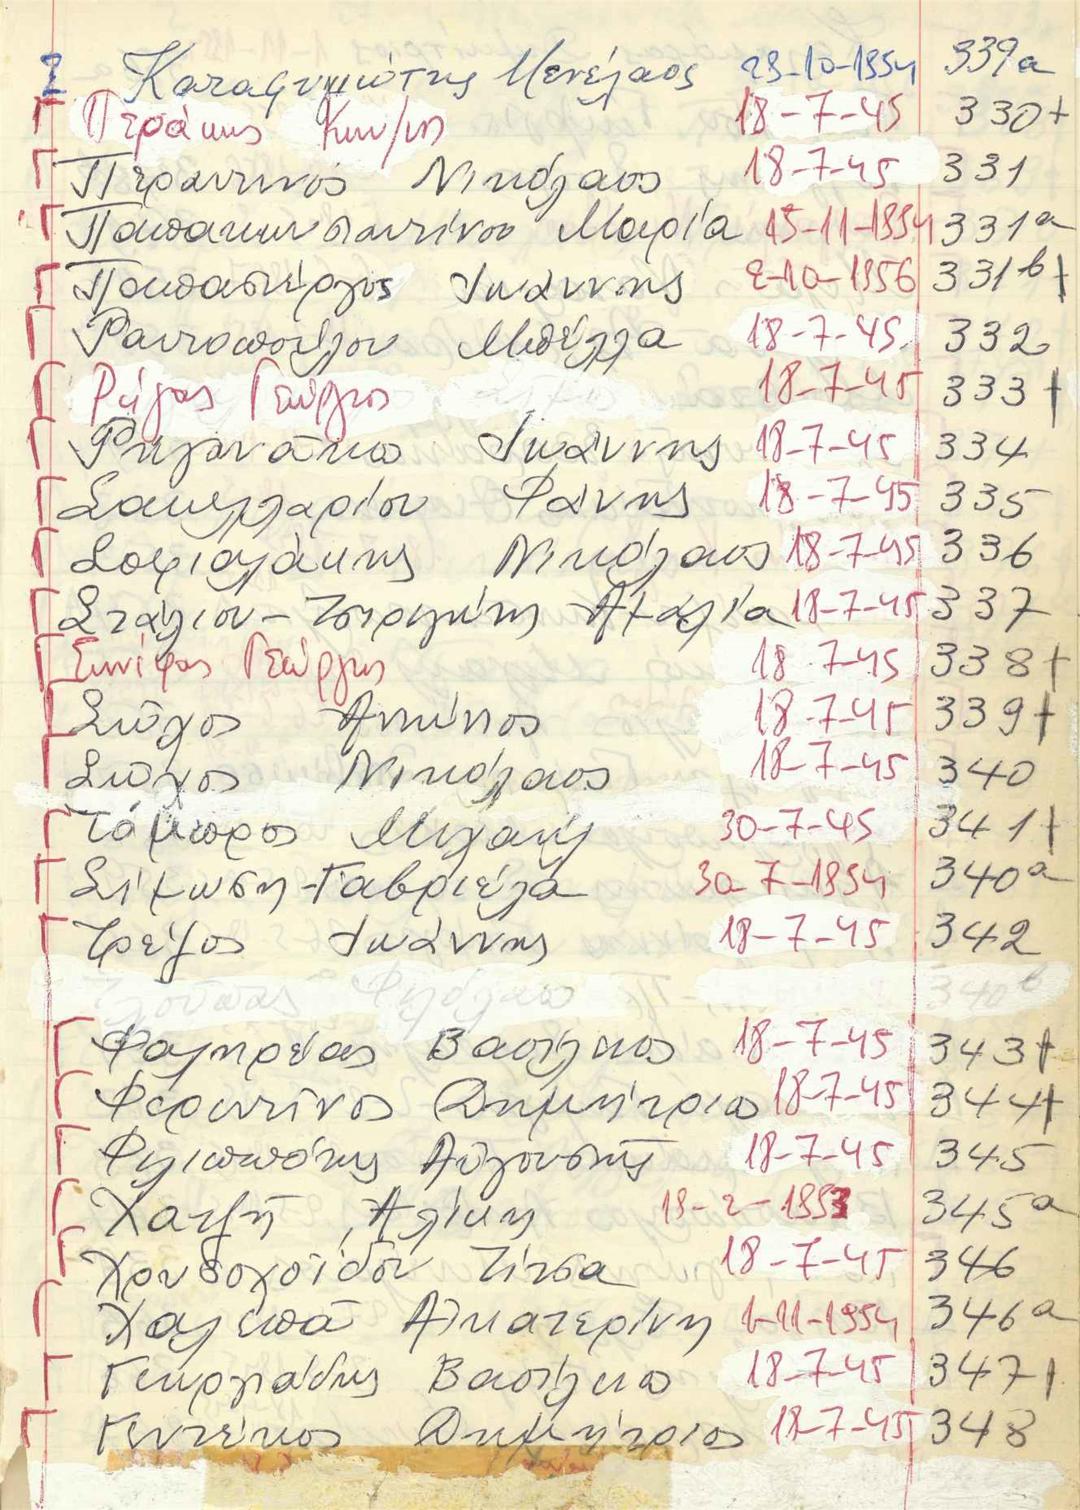 Σ Καταφυγιώτης Μενέλαος 23-10-1954 339α
Περάκης Κων/νης 18-7-45 330+
Περαντινός Νικόλαος 18-7-45 331
Παπακωνσταντίνου Μαρία 15-11-1954 331α
Παπασπέργιος Ιωάννης 2-10-1956 331b+
Ραυτοπούλου Μπέλλα 18-7-45 332
Ρήγας Γεώργιος 18-7-45 333+
Ρηγανάκο Ιωάννης 18-7-45 334
Σακελλαρίου Φάνης 18-7-45 335
Σοφιαλάκης Νικόλαος 18-7-45 336
Στάλιου-Τσιριγώτη Αμαλία 18-7-45 337
Συνίφας Γεώργιος 18-7-45 338+
Σώχος Αντώνιος 18-7-45 339+
Σώχος Νικόλαος 18-7-45 340
Τόμπρος Μιχαήλ 30-7-45 341+
Σίμωση-Γαβριέλα 30-7-1954 340α
Τρέζος Ιωάννης 18-7-45 342
340b
Φαληρέας Βασίλειος 18-7-45 343+
Φερεντίνος Δημήτριος 18-7-45 344+
Φιλιππότης Αύγουστής 18-7-45 345
Χατζή Αλίκη 345α
Χρυσοχοΐδου Τίτσα 18-7-45 346
Χαλεπά Αικατερίνη 1-11-1954 346α
Γεωργιάδης Βασίλειο 18-7-45 347+
Γεντέκος Δημήτριος 18-7-45 348